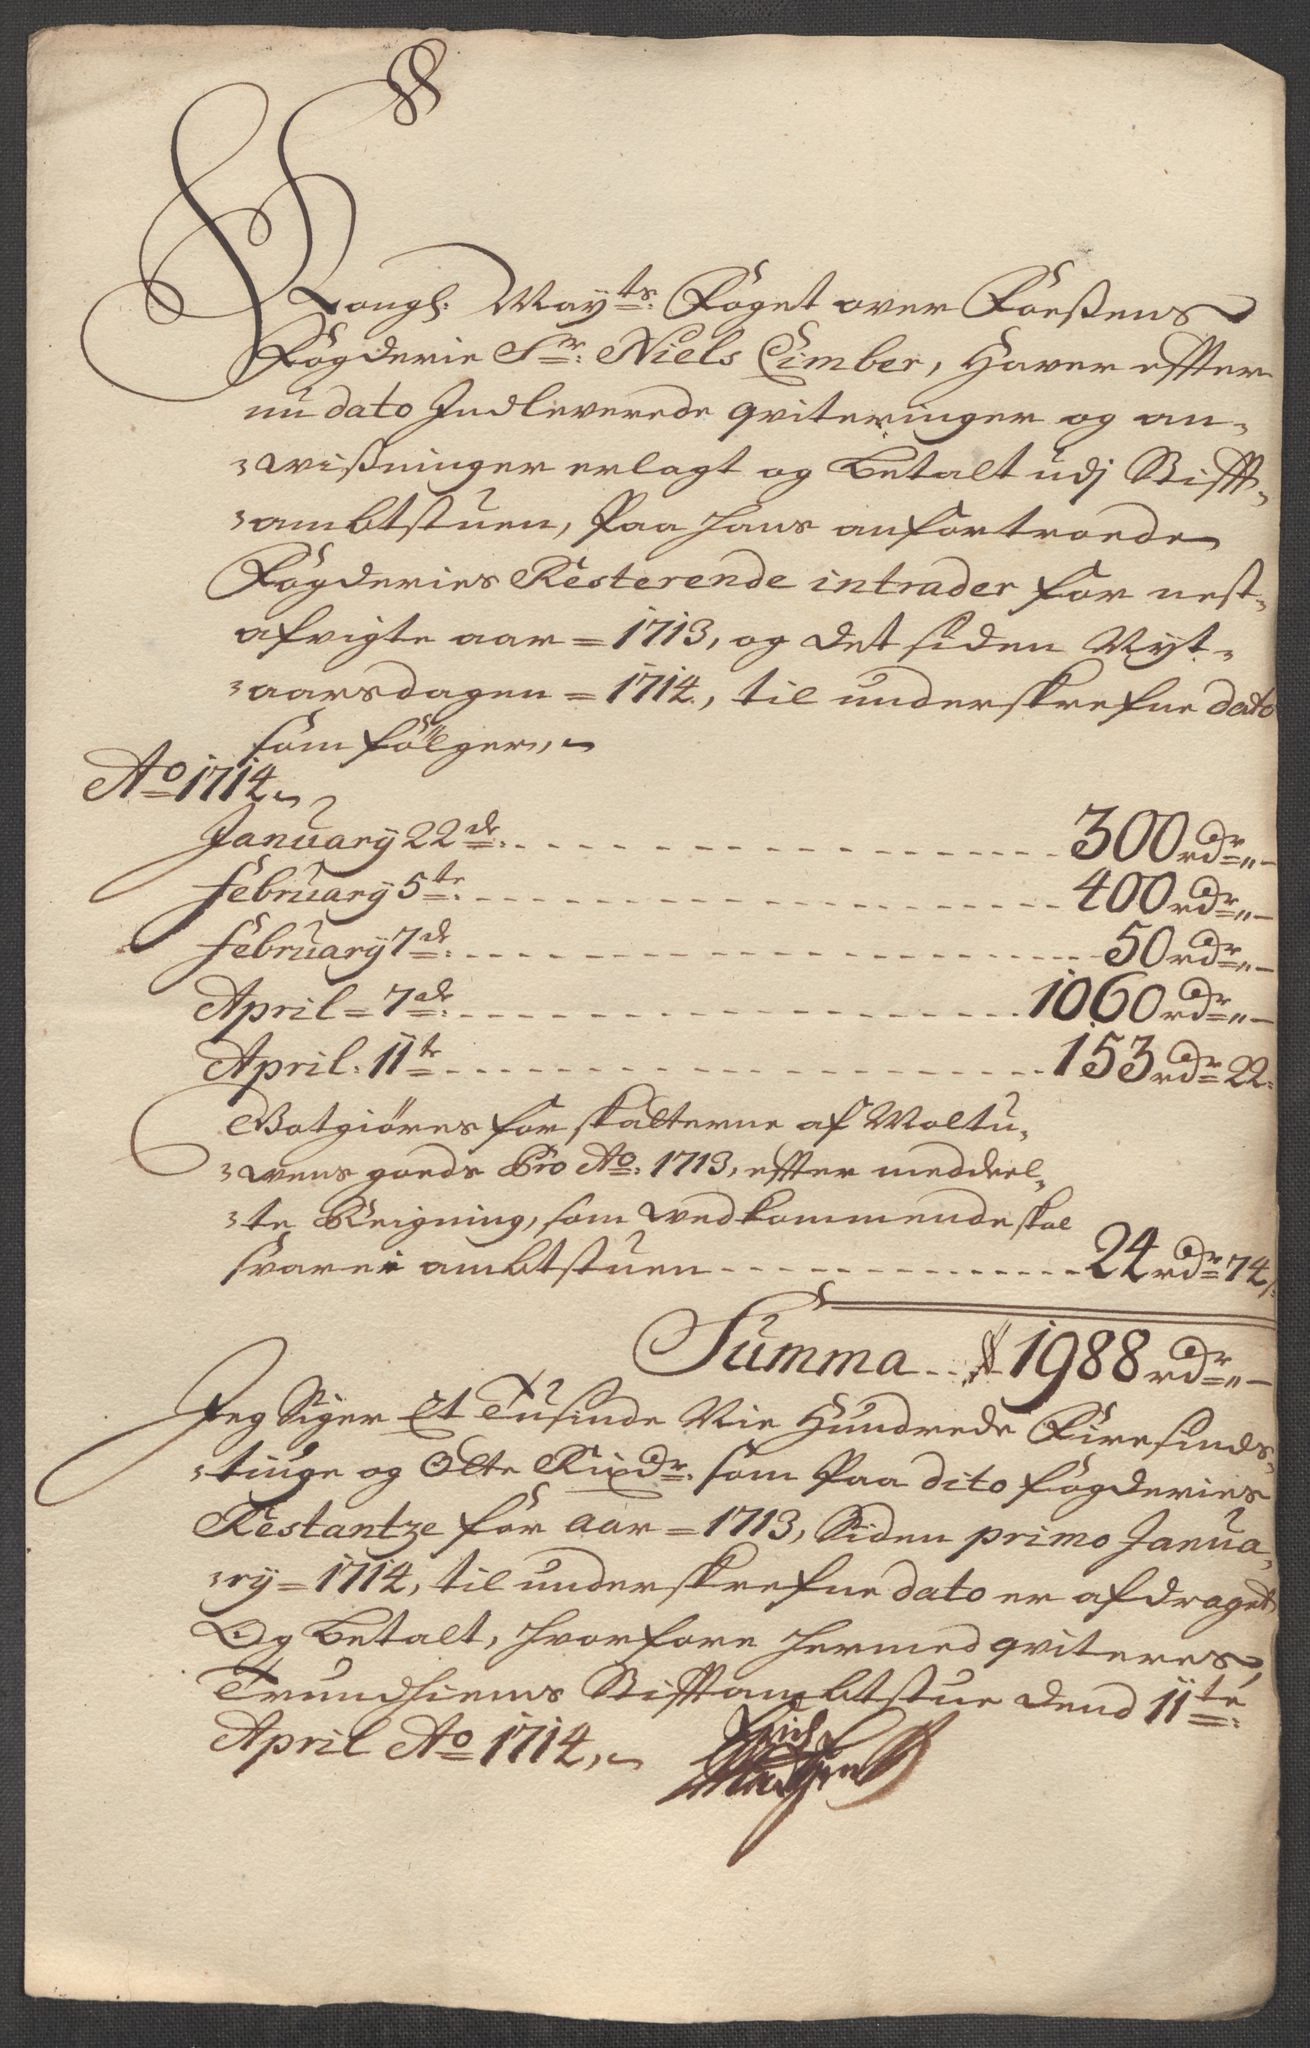 Kongl: Mayts: Foget over Foeßens
Fogderie Sr: Niels Cimber, Haver effter
nu dato Indleverede qviteringer og an-
-wißninger erlagt og betalt udj Stifft-
-ambtstuen, Paa hans anfortroede
Fogderies Resterende intrader for nest-
afvigte aar = 1713, og det siden Nyt-
-aarsdagen = 1714, til underskrefne dato
som følger,
Ao 1714
January 22de: 300 rdr „ -
February 5te: 400 rdr „ -
February 7de: 50 rdr „ -
April = 7de: 1060 rdr „ -
April. 11te 153 rdr 22
Botgiøres for skatterne af Moltu-
-wens goeds Pro Ao: 1713, effter meddeel-
-te Reigning, som wedkommende skal
svare i ambtstuen 24 rdr 74
Summa 1988 rdr „ -
Jeg Siger Et Tusinde Nie Hundrede Firesinds-
-tiuge og Otte Rixdr: som Paa dito fogderies
Restantze for aar = 1713, Siden primo Janua-
-ry = 1714, til underskrefne dato er afdraget
Og betalt, hvorfore hermed qviteres,
Trundhiems Stifftambtstue dend 11te
April Ao 1714,